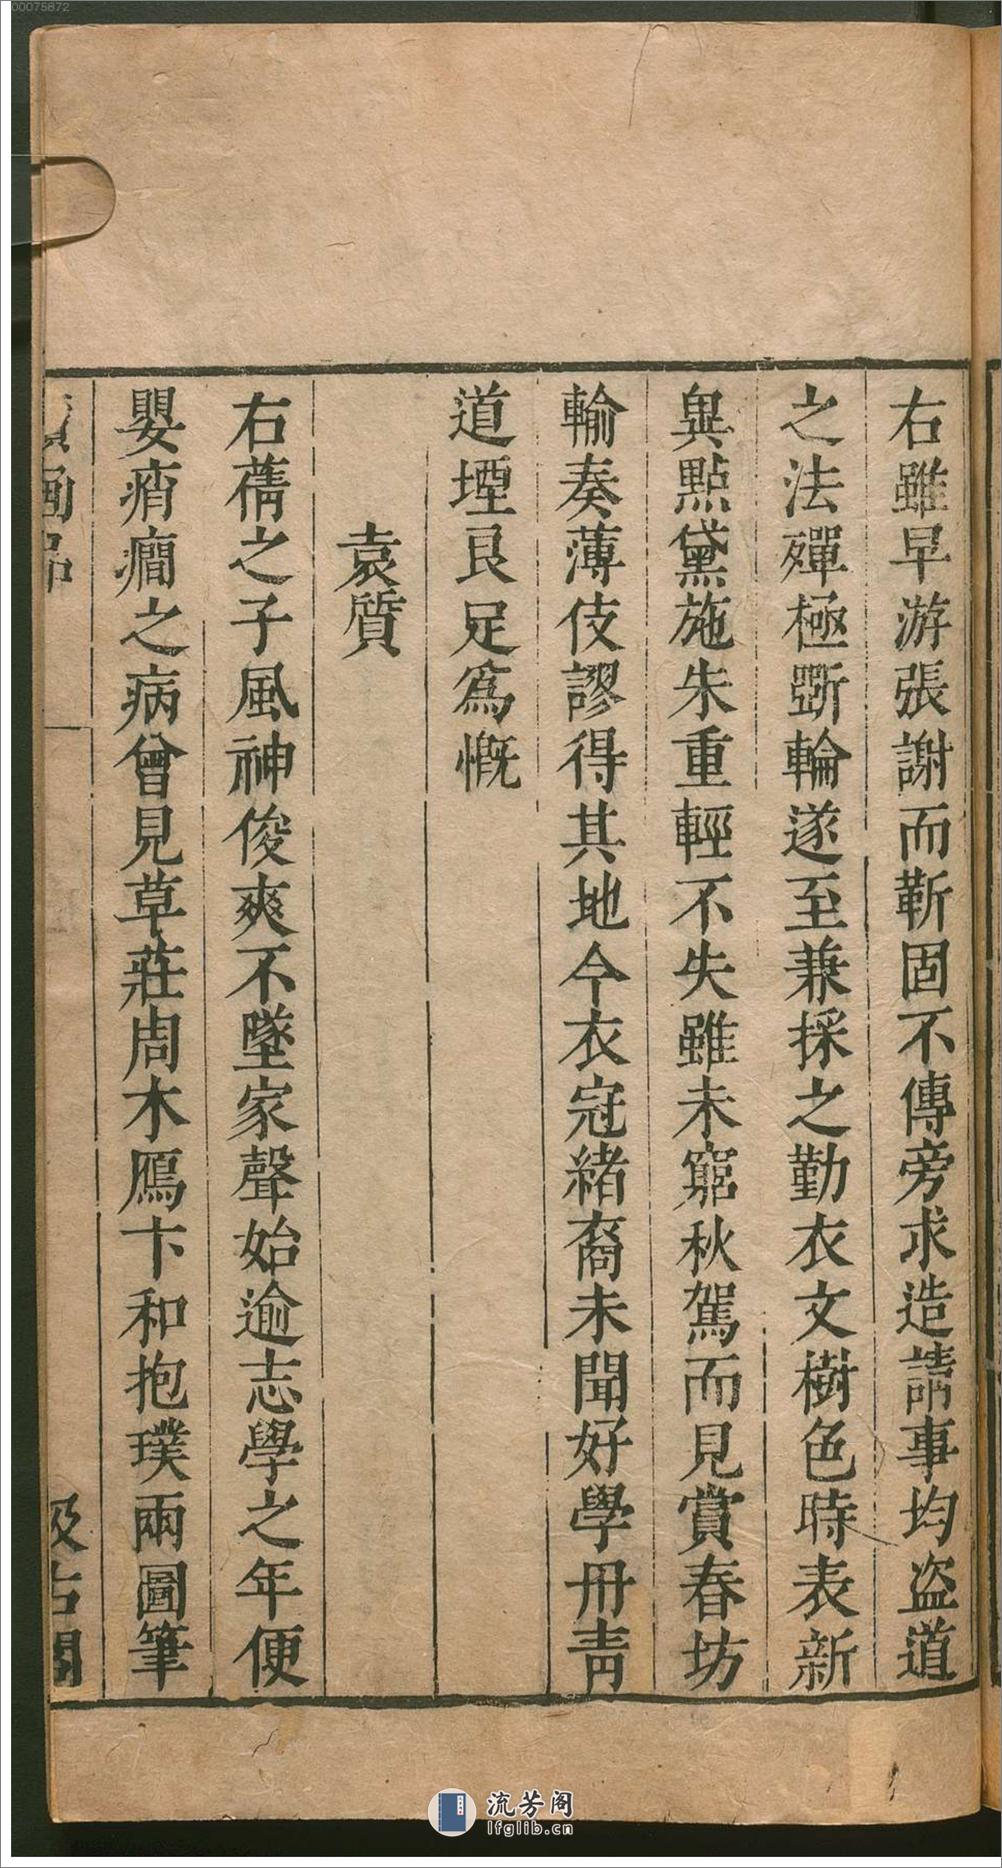 右雖早游張謝而靳固不傳旁求造請事均盜道
之法殫極斲輪遂至兼採之勤衣文樹色時表新
異點黛施朱重輕不失雖未窮秋駕而見賞春坊
輸奏薄伎謬得其地今衣冠緒裔未聞好學丹青
道堙良足為慨
袁質
右蒨之子風神俊爽不墜家聲始逾志學之年便
嬰痟癇之病曾見草莊周木鴈卞和抱璞兩圖筆
畫品
汲古閣
00075872
流芳阁
lfglib.cn